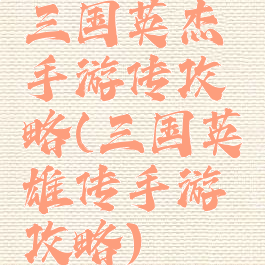 三国英杰
手游传攻
略(三国英
雄传手游
攻略)